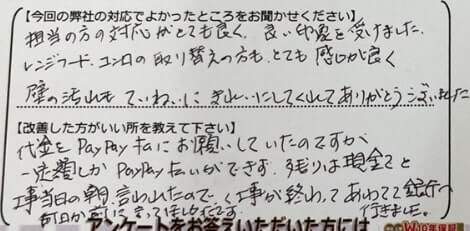 【今回の弊社の対応でよかったところをお聞かせください】
担当の方の対応がとても良く、良い印象を受けました。
レンジフード、コンロの取り替えの方も、とても感じが良く
壁の汚れもていねいにきれいにしてくれてありがとうございました
【改善した方がいい所を教えて下さい】
代金をPayPay払にお願いしていたのですが
一定額しかPayPay払いができず、残りは現金でと
工事当日の朝、言われたので、工事が終わってあわてて銀行へ
行きました。
何日か前に言ってほしかったです
アンケートをお答えいただいた方には
W10年保証